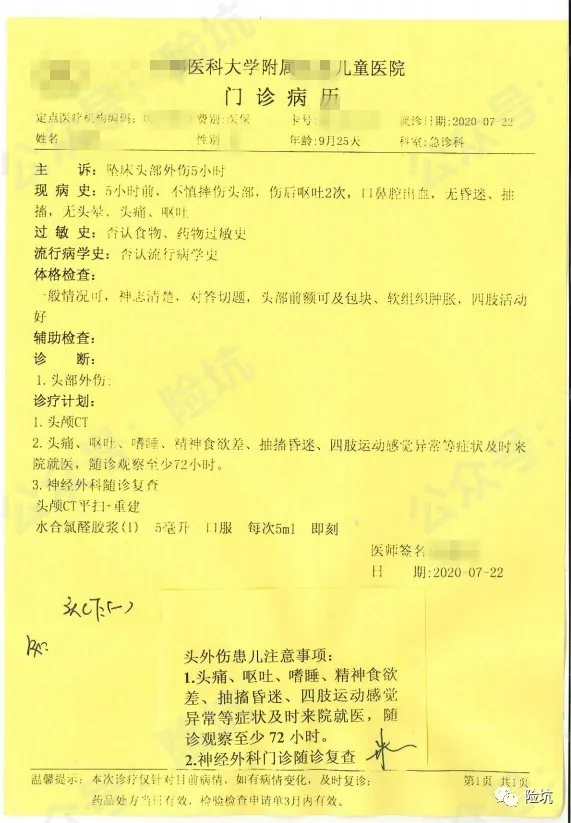 医科大学附属 儿童医院
门诊病历
定点医疗机构编码: 费别:医保 卡号: 就诊日期:2020-07-22
姓名: 性别: 年龄:9月25天 科室:急诊科
主 诉:坠床头部外伤5小时
现 病 史:5小时前,不慎摔伤头部,伤后呕吐2次,口鼻腔出血,无昏迷、抽
搐,无头晕、头痛、呕吐
过 敏 史:否认食物、药物过敏史
流行病学史:否认流行病学史
体格检查:
一般情况可,神志清楚,对答切题,头部前额可及包块、软组织肿胀,四肢活动
好
辅助检查:
诊 断:
1.头部外伤;
诊疗计划:
1.头颅CT
2.头痛、呕吐、嗜睡、精神食欲差、抽搐昏迷、四肢运动感觉异常等症状及时来
院就医,随诊观察至少72小时。
3.神经外科随诊复查
头颅CT平扫+重建
水合氯醛胶浆(1) 5毫升 口服 每次5ml 即刻
医师签名
日 期:2020-07-22
头CT:(-)
头外伤患儿注意事项:
1.头痛、呕吐、嗜睡、精神食欲
差、抽搐昏迷、四肢运动感觉
异常等症状及时来院就医,随
诊观察至少 72 小时。
2.神经外科门诊随诊复查
温馨提示:本次诊疗仅针对目前病情,如有病情变化,及时复诊;
药品处方当日有效,检验检查申请单3月内有效。
第1页 共1页
险坑
公众号:险坑